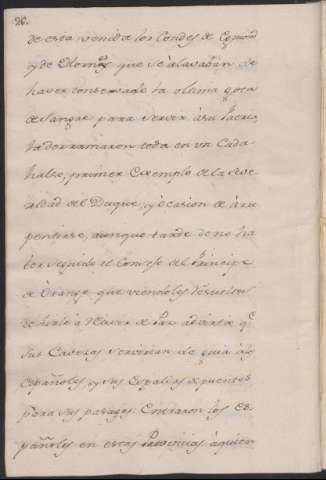 26.
de esta venida los Condes de Egmond
y de Hornos que se alavaban de
haver conservado la ultima gota
de sangre para server à su Patria,
la derramaron toda en un Cada-
halso, primer Exemplo de la seve-
ridad del Duque, y ocasion de àrre
pentirse, aunque tarde de no ha
ber seguido el Consejo del Principe
de Orange que viendoles
à de Paz, advertia q.e
sus Cabezas servirian de guia à los
Españoles, y sus Espaldas de puentes
para sus pasages. Entraron los es-
pañoles en estas Provincias àquien